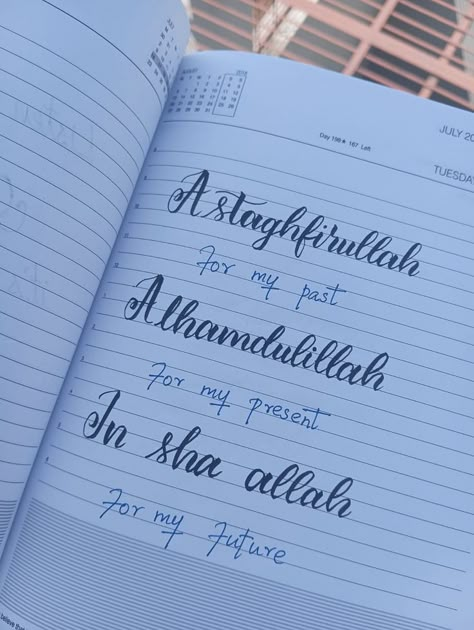 JULY 20
TUESDA
Day 198★ 167 Left
Astaghfirullah
For my past
Alhamdulillah
For my present
In sha allah
For my Future